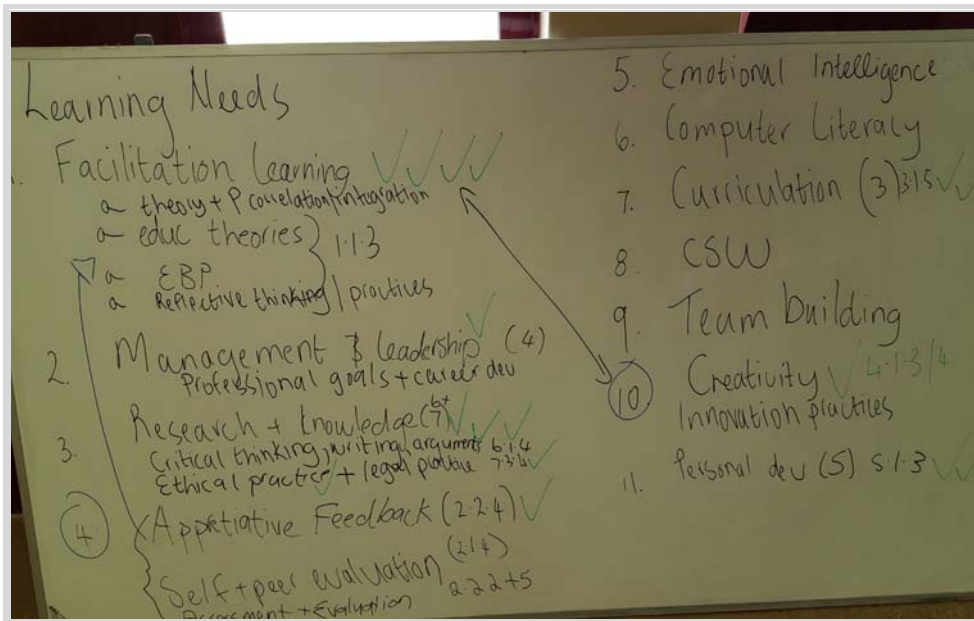 Learning Needs
1. Facilitation Learning ✓✓✓✓
a theory + P correlation/integration
a educ theories } 1.1.3
a EBP
a Reflective thinking / practices
2. Management & leadership ✓ (4)
Professional goals + career dev
3. Research + knowledge (6+7) ✓✓✓
Critical thinking, writing, arguments 6.1.4
Ethical practice ✓ + legal practice 7.3.4 ✓
4 Appretiative Feedback (2.2.4) ✓
Self + peer evaluation (2.1.4)
Assessment + Evaluation 2.2.2+5
5. Emotional Intelligence
6. Computer Literacy
7. Curriculation (3) 3.1.5 ✓✓
8. CSW
9. Team building
10 Creativity ✓ 4.1.3/4
Innovation practices
11. Personal dev (5) 5.1.3 ✓✓